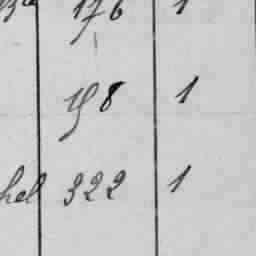 176 1
198 1
hel 322 1